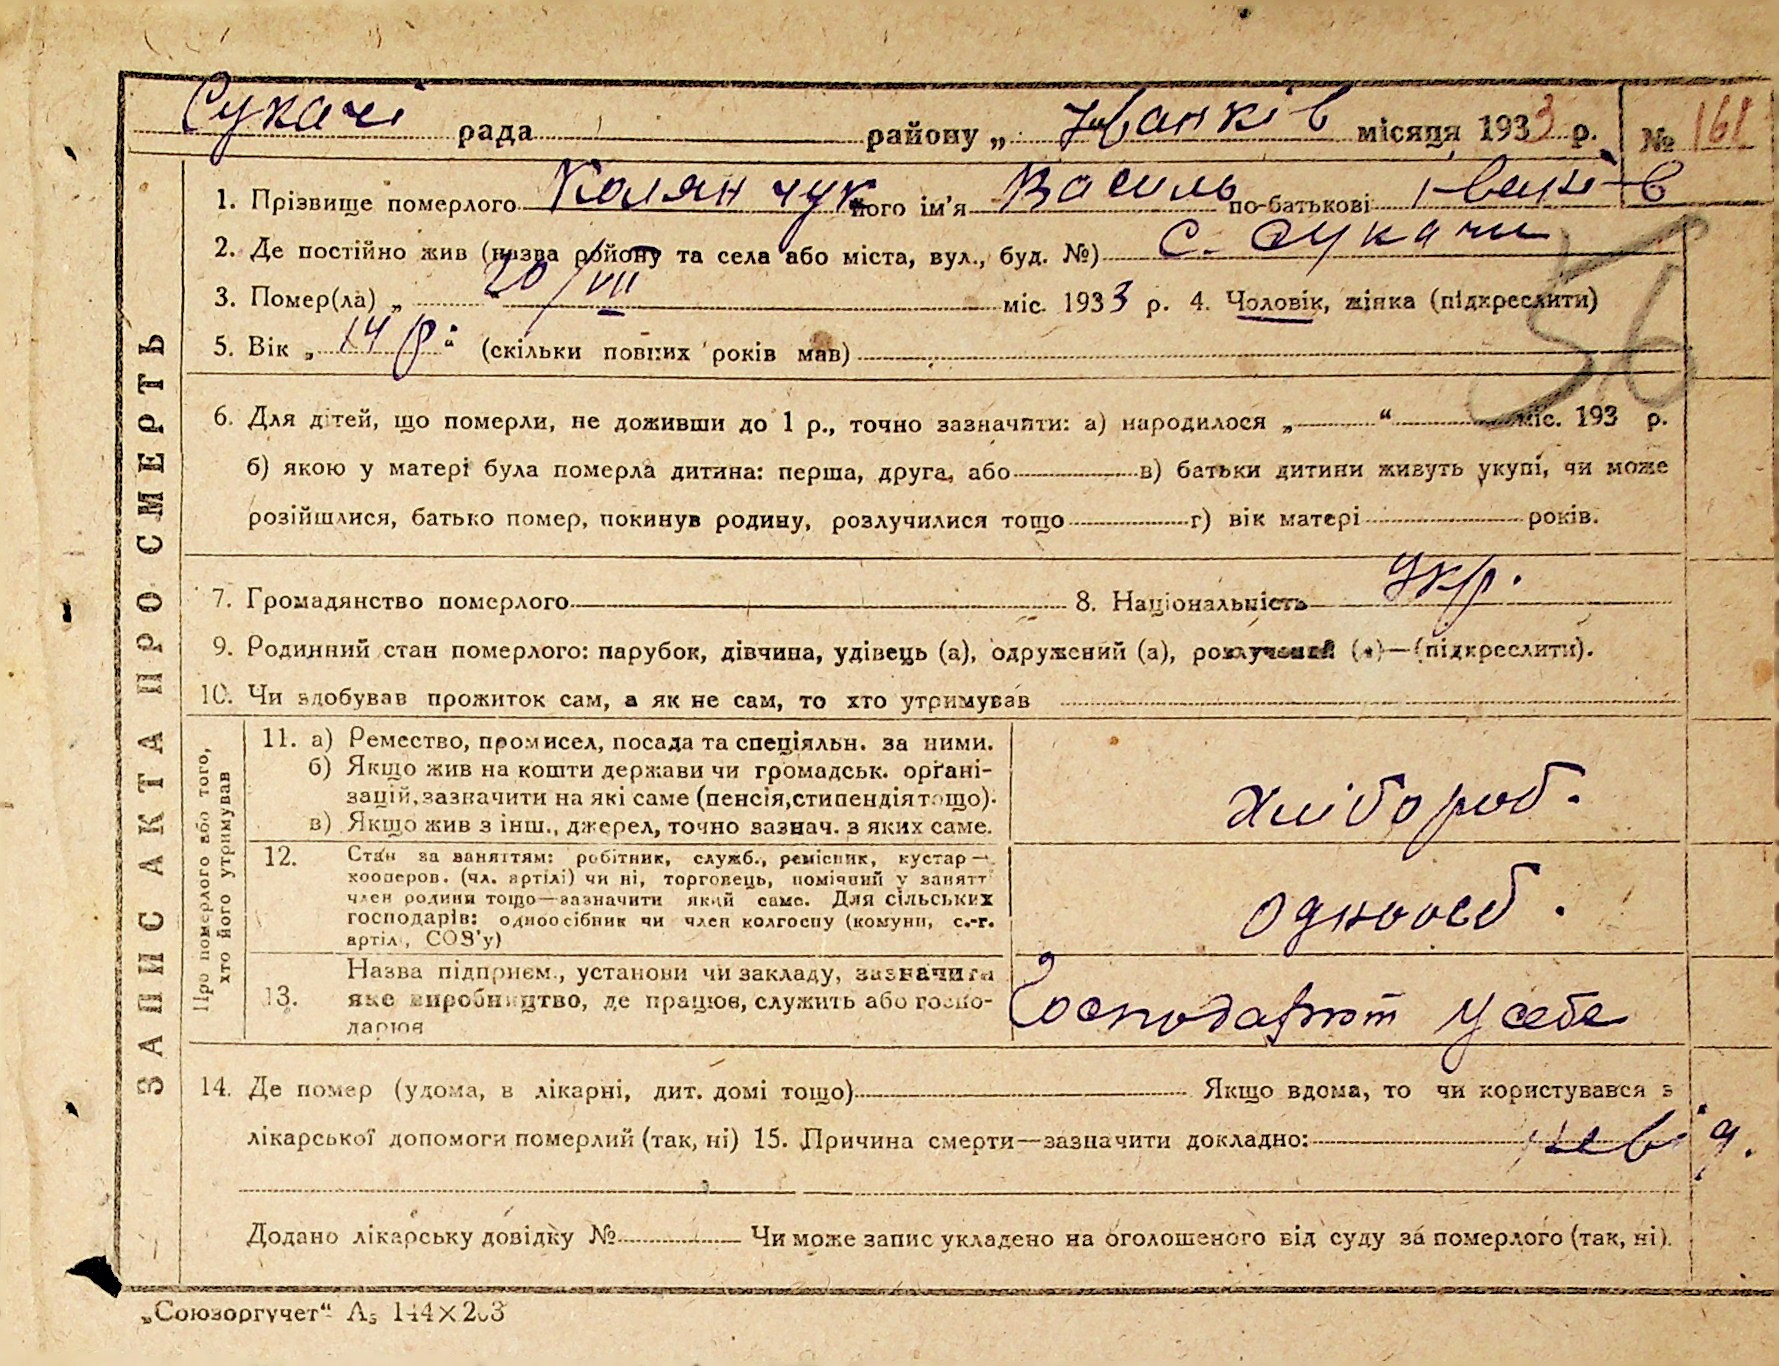 Сукачі рада районy „ Іванків місяця 1933 р. № 161
1. Прізвище померлого Колянчук його ім'я Василь по-батькові Іванів
2. Де постійно жив (назва району та села або міста, вул., буд. №) с. Сукачи
3. Помер(ла) „ 20/VII міс. 1933 р. 4. Чоловік, жінка (підкреслити)
56
5. Вік „ 14 р. “ (скільки повних років мав)
6. Для дітей, що померли, не доживши до 1 р., точно зазначити: а) народилося „ “ міс. 193 р.
б) якою у матері була померла дитина: перша, друга, або в) батьки дитини живуть укупі, чи може
розійшлися, батько помер, покинув родину, розлучилися тощо г) вік матері років.
7. Громадянство померлого 8. Національність Укр.
9. Родинний стан померлого: парубок, дівчина, удівець (а), одружений (а), розлучений (а)—(підкреслити).
10. Чи здобував прожиток сам, а як не сам, то хто утримував
ЗАПИС АКТА ПРО СМЕРТЬ
Про померлого або того,
хто його утримував
11. а) Ремество, промисел, посада та спеціяльн. за ними.
б) Якщо жив на кошти держави чи громадськ. орґані-
зацій, зазначити на які саме (пенсія, стипендія тощо).
в) Якщо жив з інш., джерел, точно зазнач. з яких саме.
хлібороб.
12. Стан за заняттям: робітник, служб., ремісник, кустар—
кооперов. (чл. артілі) чи ні, торговець, помічний у занятт
член родини тощо—зазначити який саме. Для сільських
господарів: одноосібник чи член колгоспу (комуни, с.-г.
артіл , СОЗ'у)
одноосб.
13. Назва підприєм., установи чи закладу, зазначити
яке виробництво, де працюв, служить або госпо-
дарюв
Господарют у себе
14. Де помер (удома, в лікарні, дит. домі тощо) Якщо вдома, то чи користувався з
лікарської допомоги померлий (так, ні) 15. Причина смерти—зазначити докладно: невід.
Додано лікарську довідку № Чи може запис укладено на оголошеного від суду за померлого (так, ні).
„Союзоргучет“ А₅ 144×203